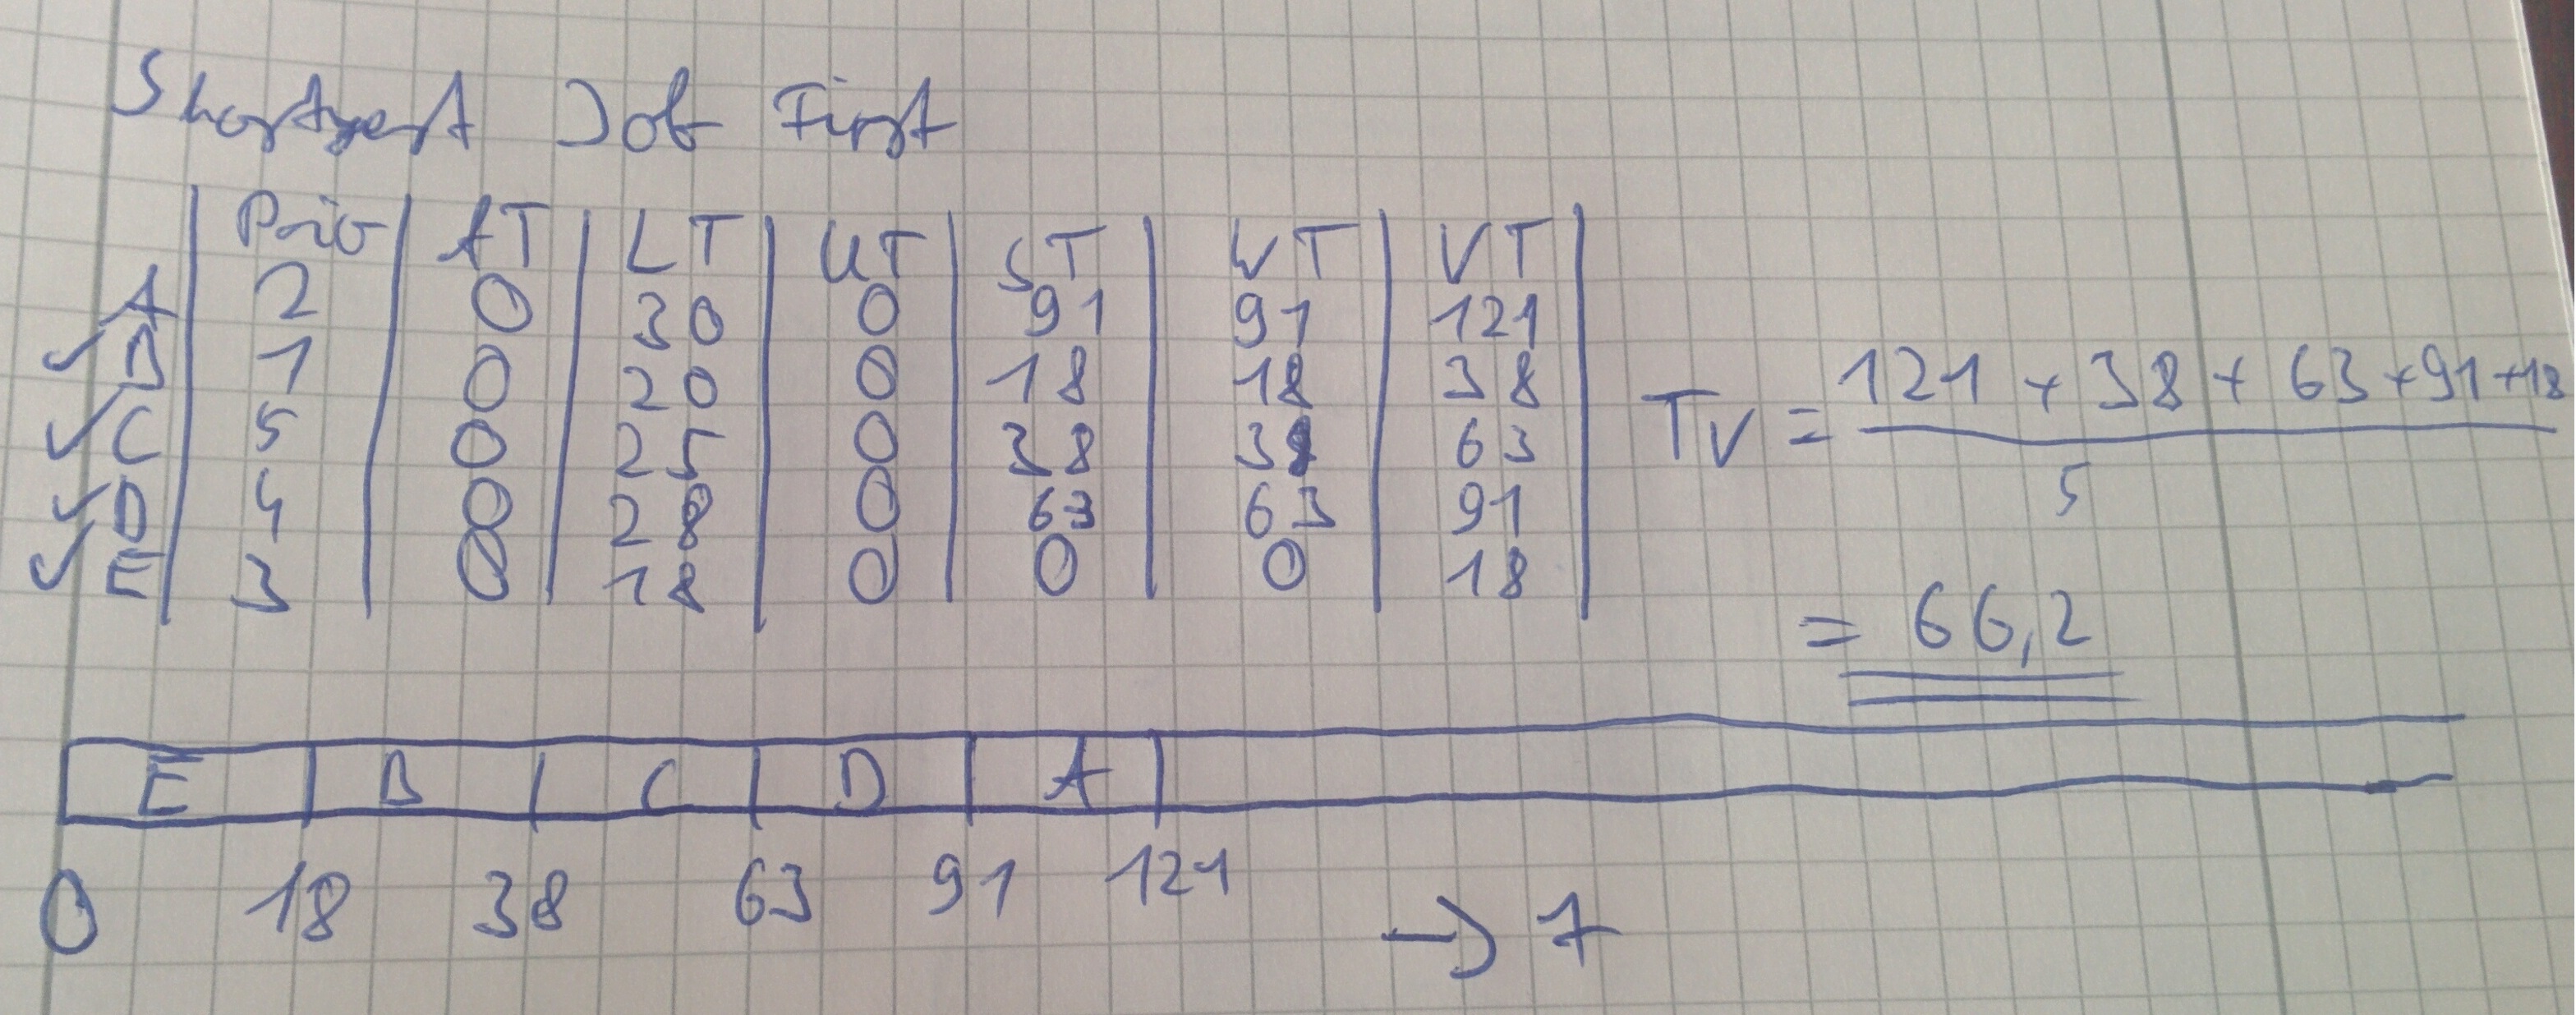 Shortest Job First
Prio AT LT UT ST WT VT
A 2 0 30 0 91 91 121
✓ B 1 0 20 0 18 18 38
✓ C 5 0 25 0 38 38 63
✓ D 4 0 28 0 63 63 91
✓ E 3 0 18 0 0 0 18
TV = 121 + 38 + 63 + 91 + 18
5
= 66,2
E B C D A
0 18 38 63 91 121
→ 7